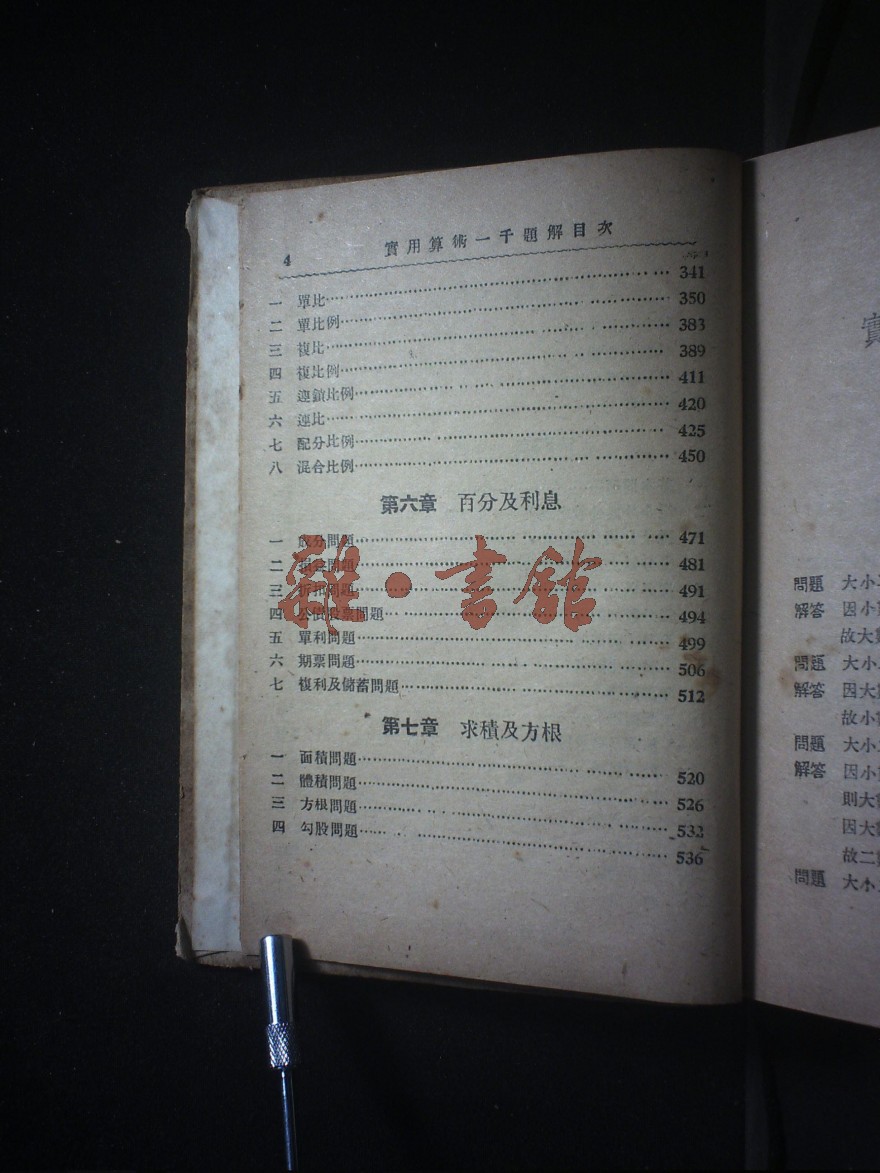 4 實用算術一千題解目次
一 單比 341
二 單比例 350
三 複比 383
四 複比例 389
五 連鎖比例 411
六 連比 420
七 配分比例 425
八 混合比例 450
第六章 百分及利息
一 成分問題 471
二 損益問題 481
三 折扣問題 491
四 公債股票問題 494
五 單利問題 499
六 期票問題 506
七 複利及儲蓄問題 512
第七章 求積及方根
一 面積問題 520
二 體積問題 526
三 方根問題 532
四 勾股問題 536
雜·書館
實
問題 大小
解答 因小
故大
問題 大小
解答 因大
故小
問題 大小
解答 因小
則大
因大
故二
問題 大小